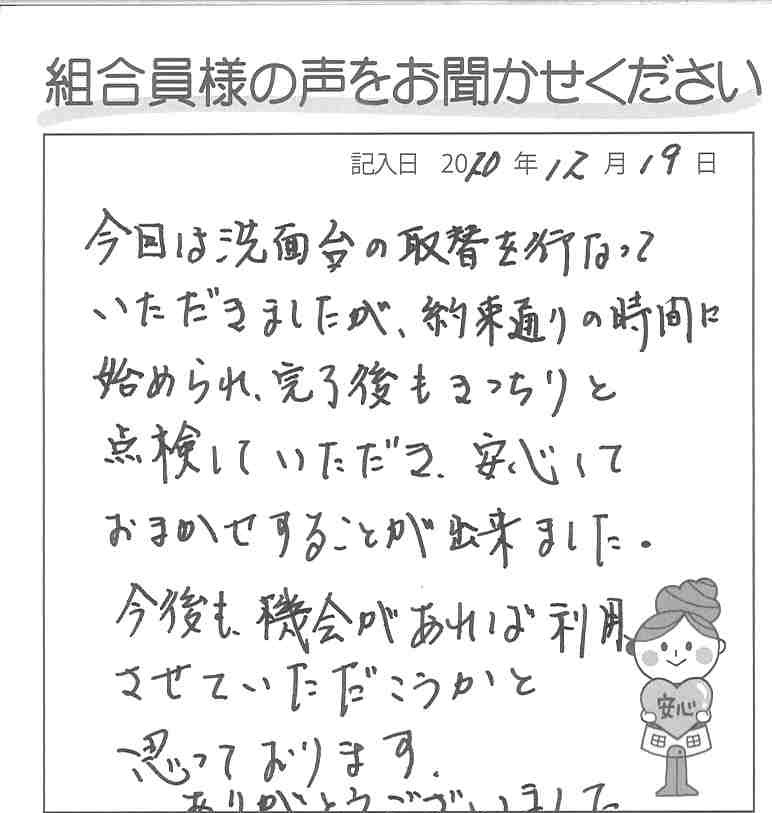 組合員様の声をお聞かせください
記入日 2020年12月19日
今回は洗面台の取替を行なって
いただきましたが、約束通りの時間に
始められ、完了後もきっちりと
点検していただき、安心して
おまかせすることが出来ました。
今後も、機会があれば利用
させていただこうかと
思っております。
ありがとうございました
安心